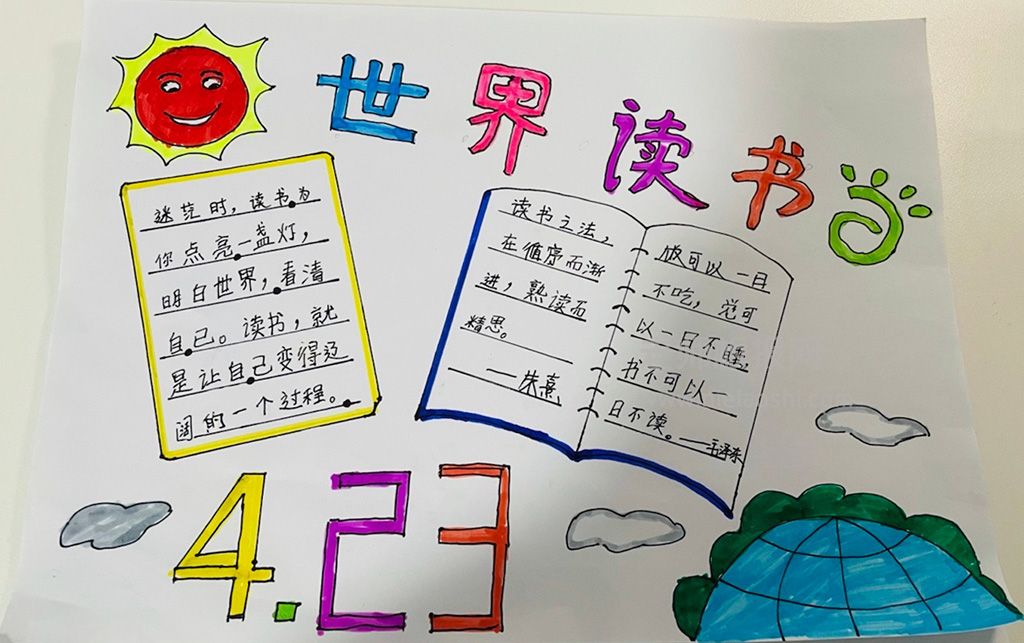 世界读书日
迷茫时，读书为
你点亮一盏灯，
明白世界，看清
自己。读书，就
是让自己变得辽
阔的一个过程。
读书之法，
在循序而渐
进，熟读而
精思。
——朱熹
饭可以一日
不吃，觉可
以一日不睡，
书不可以一
日不读。——毛泽东
4.23